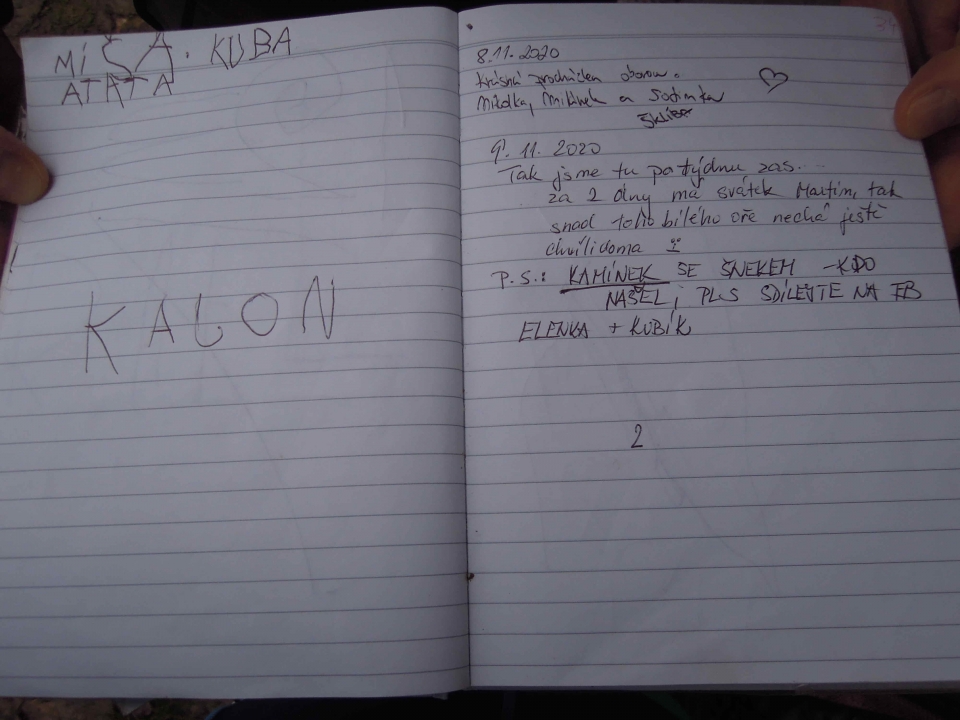 MÍŠA. KUBA
ATATA
KALON
8.11.2020
Krásná procházka oborou.
Milánek a
9. 11. 2020
Tak jsme tu po týdnu zas...
za 2 dny má svátek Martin, tak
snad toho bílého oře nechá ještě
chvíli doma
P.S.: KAMÍNEK SE ŠNEKEM - KDO
NAŠEL, PLS SDÍLEJTE NA FB
ELENKA + KUBÍK
2